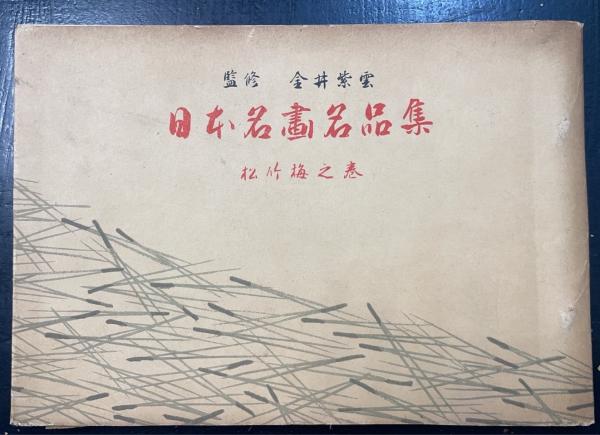 監修 金井紫雲
日本名畫名品集
松竹梅之巻